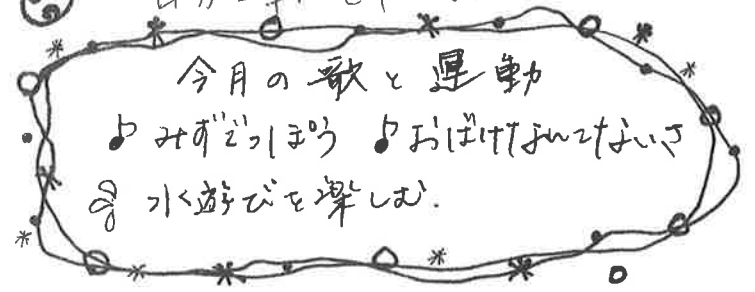 今月の歌と運動
♪みずでっぽう ♪おばけなんてないさ
水遊びを楽しむ.